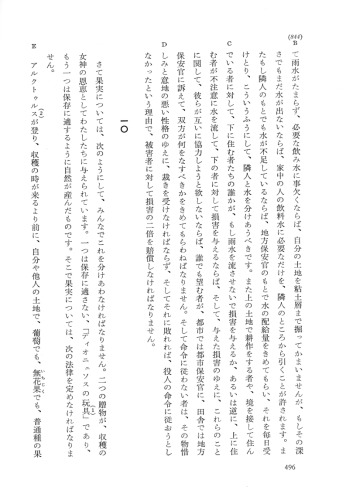 (844)
B て雨水がたまらず、必要な飲み水に事欠くならば、自分の土地を粘土層まで掘ってかまいませんが、もしその深
さでもまだ水が出ないならば、家中の人の飲料水に必要なだけを、隣人のところから引くことが許されます。ま
たもし隣人のもとでも水が不足しているならば、地方保安官のもとで水の配給量をきめてもらい、それを毎日受
けとり、こういうふうにして、隣人と水を分けあうべきです。また上の土地で耕作をする者や、境を接して住ん
C でいる者に対して、下に住む者たちの誰かが、もし雨水を流させないで損害を与えるか、あるいは逆に、上に住
む者が不注意に水を流して、下の者に対して損害を与えるならば、そして、与えた損害のゆえに、これらのこと
に関して、彼らが互いに協力しようと欲しないならば、誰でも望む者が、都市では都市保安官に、田舎では地方
保安官に訴えて、双方が何をなすべきかをきめてもらわねばなりません。そして命令に従わない者は、その物惜
D しみと意地の悪い性格のゆえに、裁きを受けなければならず、そしてそれに敗れれば、役人の命令に従おうとし
なかったという理由で、被害者に対して損害の二倍を賠償しなければなりません。
一〇
さて果実については、次のようにして、みんなでこれを分けあわなければなりません。二つの贈物が、収穫の
女神の恩恵としてわたしたちに与えられています。一つは保存に適さない、「ディオニュソスの玩具」であり、
もう一つは保存に適するように自然が産んだものです。そこで果実については、次の法律を定めなければなりま
せん。
E アルクトゥルスが登り、収穫の時が来るより前に、自分や他人の土地で、葡萄でも、無花果でも、普通種の果
496